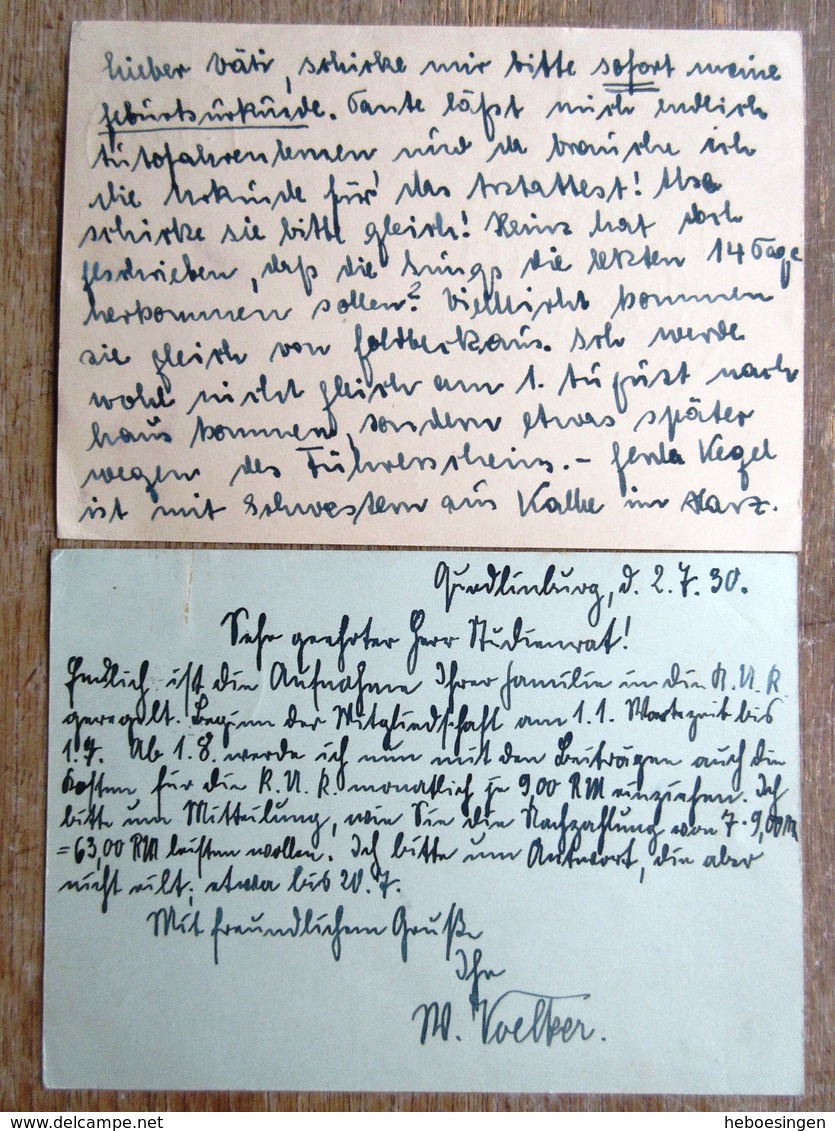 Lieber Väti, schicke mir bitte sofort meine
Geburtsurkunde. Tante läßt mich endlich
Autofahrenlernen und da brauche ich
die Urkunde für das Arztattest! Also
schicke sie bitte gleich! Heinz hat doch
geschrieben, daß die Jungs die letzten 14 Tage
herkommen sollen? Vielleicht kommen
sie gleich von Goldbeck aus. Ich werde
wohl nicht gleich am 1. August nach
haus kommen, sondern etwas später
wegen des Führerscheins. – Gerda Kegel
ist mit Schwestern aus Kalbe im Harz.
Quedlinburg, d. 2.7.30.
Sehr geehrter Herr Studienrat!
Endlich ist die Aufnahme Ihrer Familie in die K.U.K
geregelt. Beginn der Mitgliedschaft am 1.1. Wartezeit bis
1.7. Ab 1.8. werde ich nun mit den Beiträgen auch die
Kosten für die K.U.K. monatlich je 9,00 RM einziehen. Ich
bitte um Mitteilung, wie Sie die Nachzahlung von 7·9,00 RM
= 63,00 RM leisten wollen. Ich bitte um Antwort, die aber
nicht eilt; etwa bis 20.7.
Mit freundlichem Gruße
Ihr
W. Voelker.
heboesingen